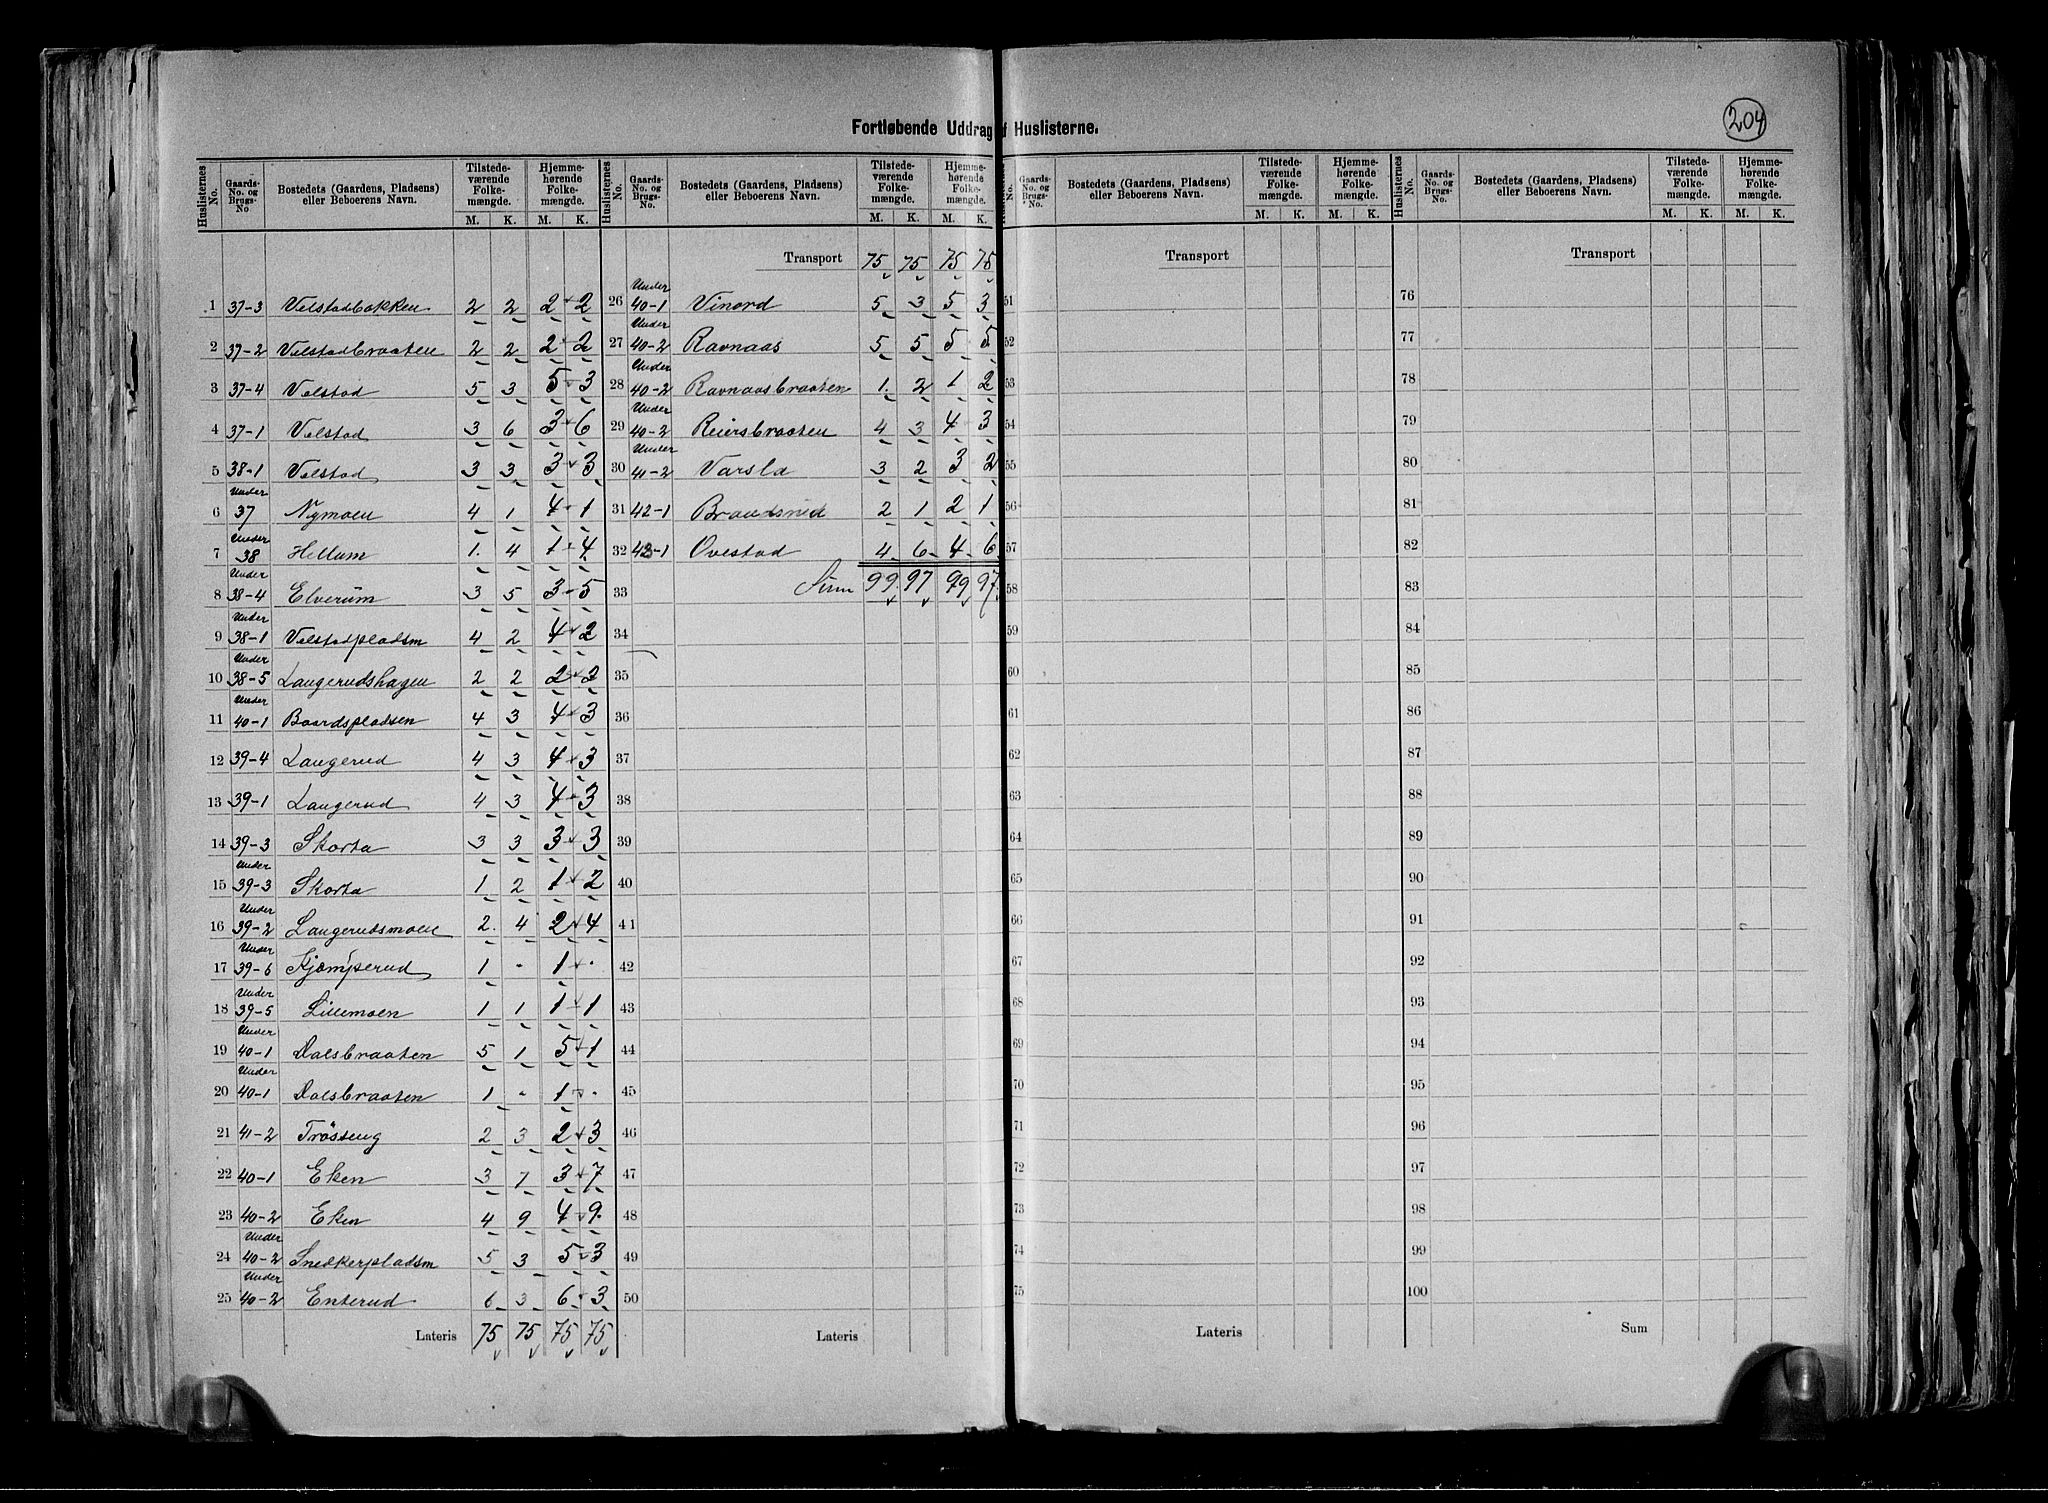 204
Fortløbende Uddrag af Huslisterne.
Huslisternes No. Gaards-No. og Brugs-No Bostedets (Gaardens, Pladsens) eller Beboerens Navn. Tilstedeværende Folkemængde. M. K. Hjemmehørende Folkemængde. M. K.
1 37-3 Velstadbakken 2 2 2 2
2 37-2 Velstadbraaten 2 2 2 2
3 37-4 Velstad 5 3 5 3
4 37-1 Velstad 3 6 3 6
5 38-1 Velstad 3 3 3 3
6 Under 37 Nymoen 4 1 4 1
7 Under 38 Hellum 1 4 1 4
8 Under 38-4 Elverum 3 5 3 5
9 Under 38-1 Velstadpladsen 4 2 4 2
10 Under 38-5 Langerudshagen 2 2 2 2
11 Under 40-1 Baardspladsen 4 3 4 3
12 39-4 Langerud 4 3 4 3
13 39-1 Langerud 4 3 4 3
14 39-3 Skorta 3 3 3 3
15 Under 39-3 Skorta 1 2 1 2
16 Under 39-2 Langerudsmoen 2 4 2 4
17 Under 39-6 Kjæmperud 1 - 1 -
18 Under 39-5 Lillemoen 1 1 1 1
19 Under 40-1 Dalsbraaten 5 1 5 1
20 Under 40-1 Dalsbraaten 1 - 1 -
21 41-2 Trøsteng 2 3 2 3
22 40-1 Eken 3 7 3 7
23 40-2 Eken 4 9 4 9
24 Under 40-2 Snedkerpladsen 5 3 5 3
25 Under 40-2 Enterud 6 3 6 3
Lateris 75 75 75 75
Huslisternes No. Gaards-No. og Brugs-No. Bostedets (Gaardens, Pladsens) eller Beboerens Navn. Tilstedeværende Folkemængde. M. K. Hjemmehørende Folkemængde. M. K.
Transport 75 75 75 75
26 Under 40-1 Vinord 5 3 5 3
27 Under 40-2 Ravnaas 5 5 5 5
28 Under 40-2 Ravnaasbraaten 1 2 1 2
29 Under 40-2 Reiersbraaten 4 3 4 3
30 Under 41-2 Varsla 3 2 3 2
31 42-1 Brandsrud 2 1 2 1
32 43-1 Ovestad 4 6 4 6
33 Sum 99 97 99 97
34
35
36
37
38
39
40
41
42
43
44
45
46
47
48
49
50
Lateris
Huslisternes No. Gaards-No. og Brugs-No. Bostedets (Gaardens, Pladsens) eller Beboerens Navn. Tilstedeværende Folkemængde. M. K. Hjemmehørende Folkemængde. M. K.
Transport
51
52
53
54
55
56
57
58
59
60
61
62
63
64
65
66
67
68
69
70
71
72
73
74
75
Lateris
Huslisternes No. Gaards-No. og Brugs-No. Bostedets (Gaardens, Pladsens) eller Beboerens Navn. Tilstedeværende Folkemængde. M. K. Hjemmehørende Folkemængde. M. K.
Transport
76
77
78
79
80
81
82
83
84
85
86
87
88
89
90
91
92
93
94
95
96
97
98
99
100
Sum